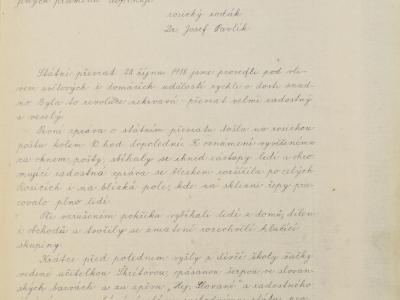 jiných pramenů doplňuje
rosický rodák
Dr Josef Pavlík
Státní převrat 28 října 1918 jsme provedli pod vli-
vem světových i domácích událostí rychle a dosti snad-
no. Byla to revoluce nekrvavá - převrat velmi radostný
a veselý.
První zpráva o státním převratu došla na rosickou
poštu kolem 10 hod dopolední. K oznámení vyvěšenému
za oknem pošty, sbíhaly se ihned zástupy lidí a ohro-
mující radostná zpráva se bleskem rozšířila po celých
Rosicích i na blízká pole, kde na sklizni řepy pra-
covalo plno lidí.
Po vzrušeném pokřiku vybíhali lidé z domů, dílen
i obchodů a tvořily se zmateně rozechvělé hlučící
skupiny.
Krátce před polednem vyšly z dívčí školy žačky
vedené učitelkou Skřítovou, opásanou šerpou ve slovan-
ských barvách a za zpěvu "Hej Slované" a radostného